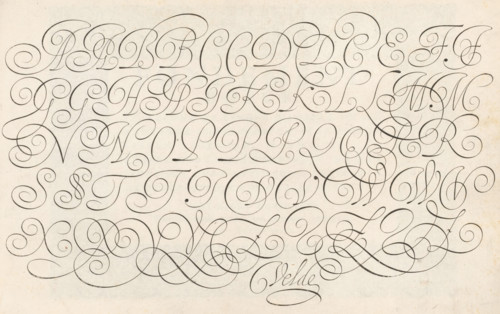 A A B B C C D D E E F F
G G H H I K K L L M M
N N O P P P Q Q R R
S S T T T V V W W W
X X Y Y Z Z Z Z
Velde